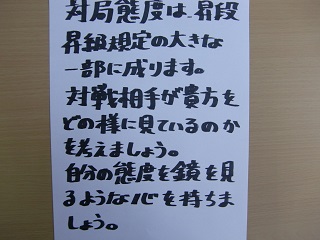 対局態度は、昇段
昇級規定の大きな
一部に成ります。
対戦相手が貴方を
どの様に見ているのか
を考えましょう。
自分の態度を鏡を見
るような心を持ちま
しょう。